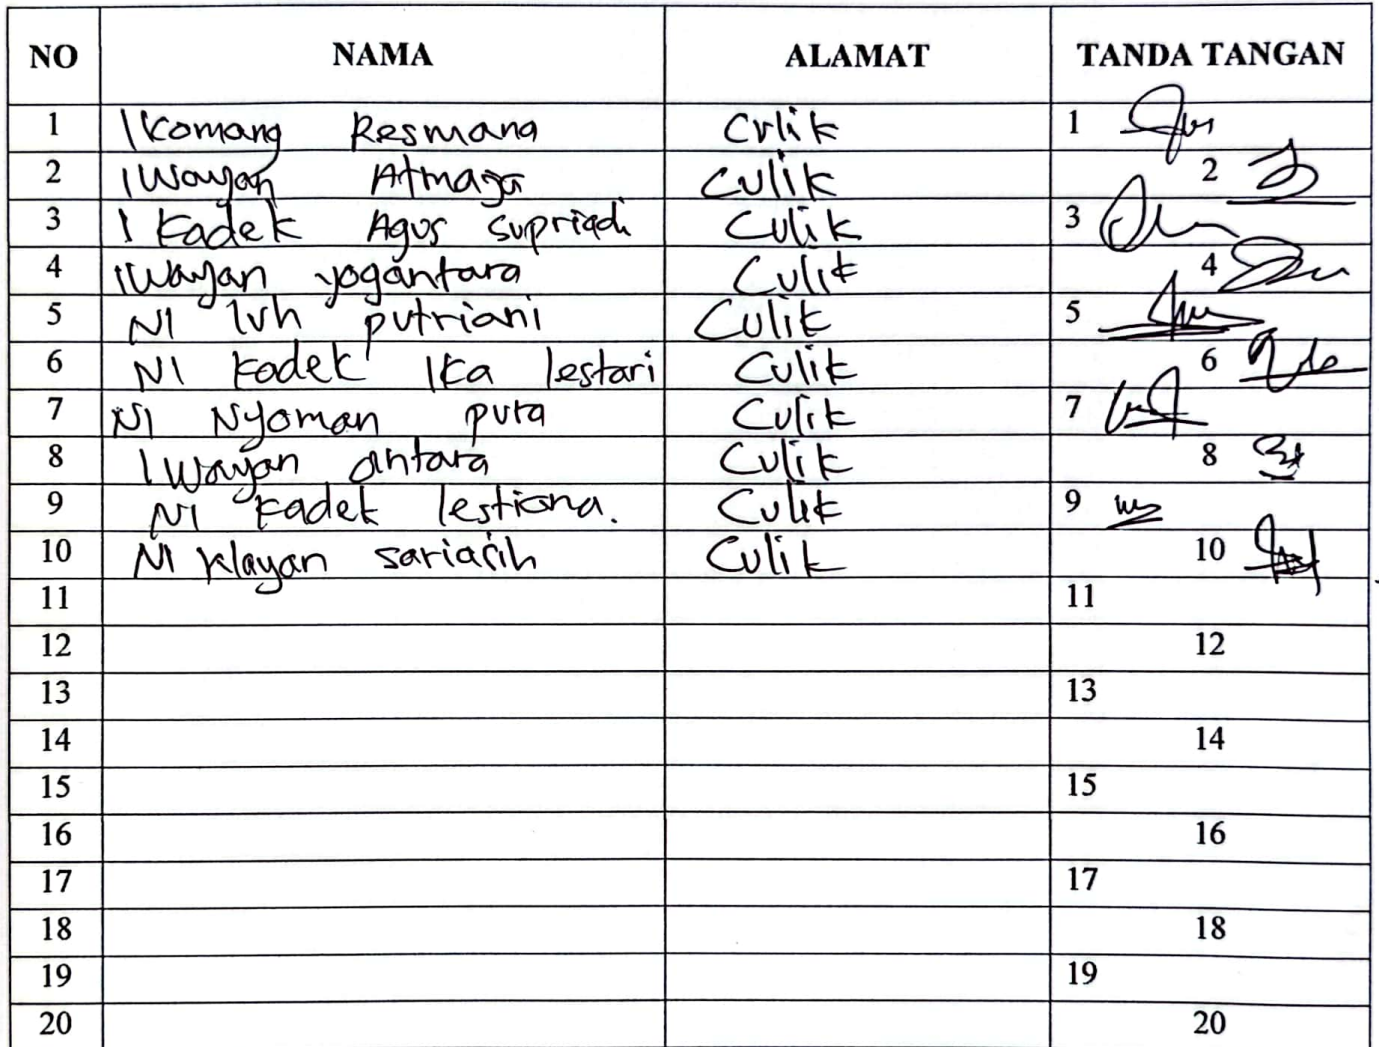 NO NAMA ALAMAT TANDA TANGAN
1 I Komang Resmana Culik 1
2 I Wayan Atmaja Culik 2
3 I Kadek Agus supriadi Culik 3
4 I Wayan yogantara Culik 4
5 NI luh putriani Culik 5
6 NI Kadek Ika lestari Culik 6
7 NI Nyoman pura Culik 7
8 I Wayan antara Culik 8
9 NI Kadek lestiana. Culik 9
10 NI Wayan sariasih Culik 10
11 11
12 12
13 13
14 14
15 15
16 16
17 17
18 18
19 19
20 20